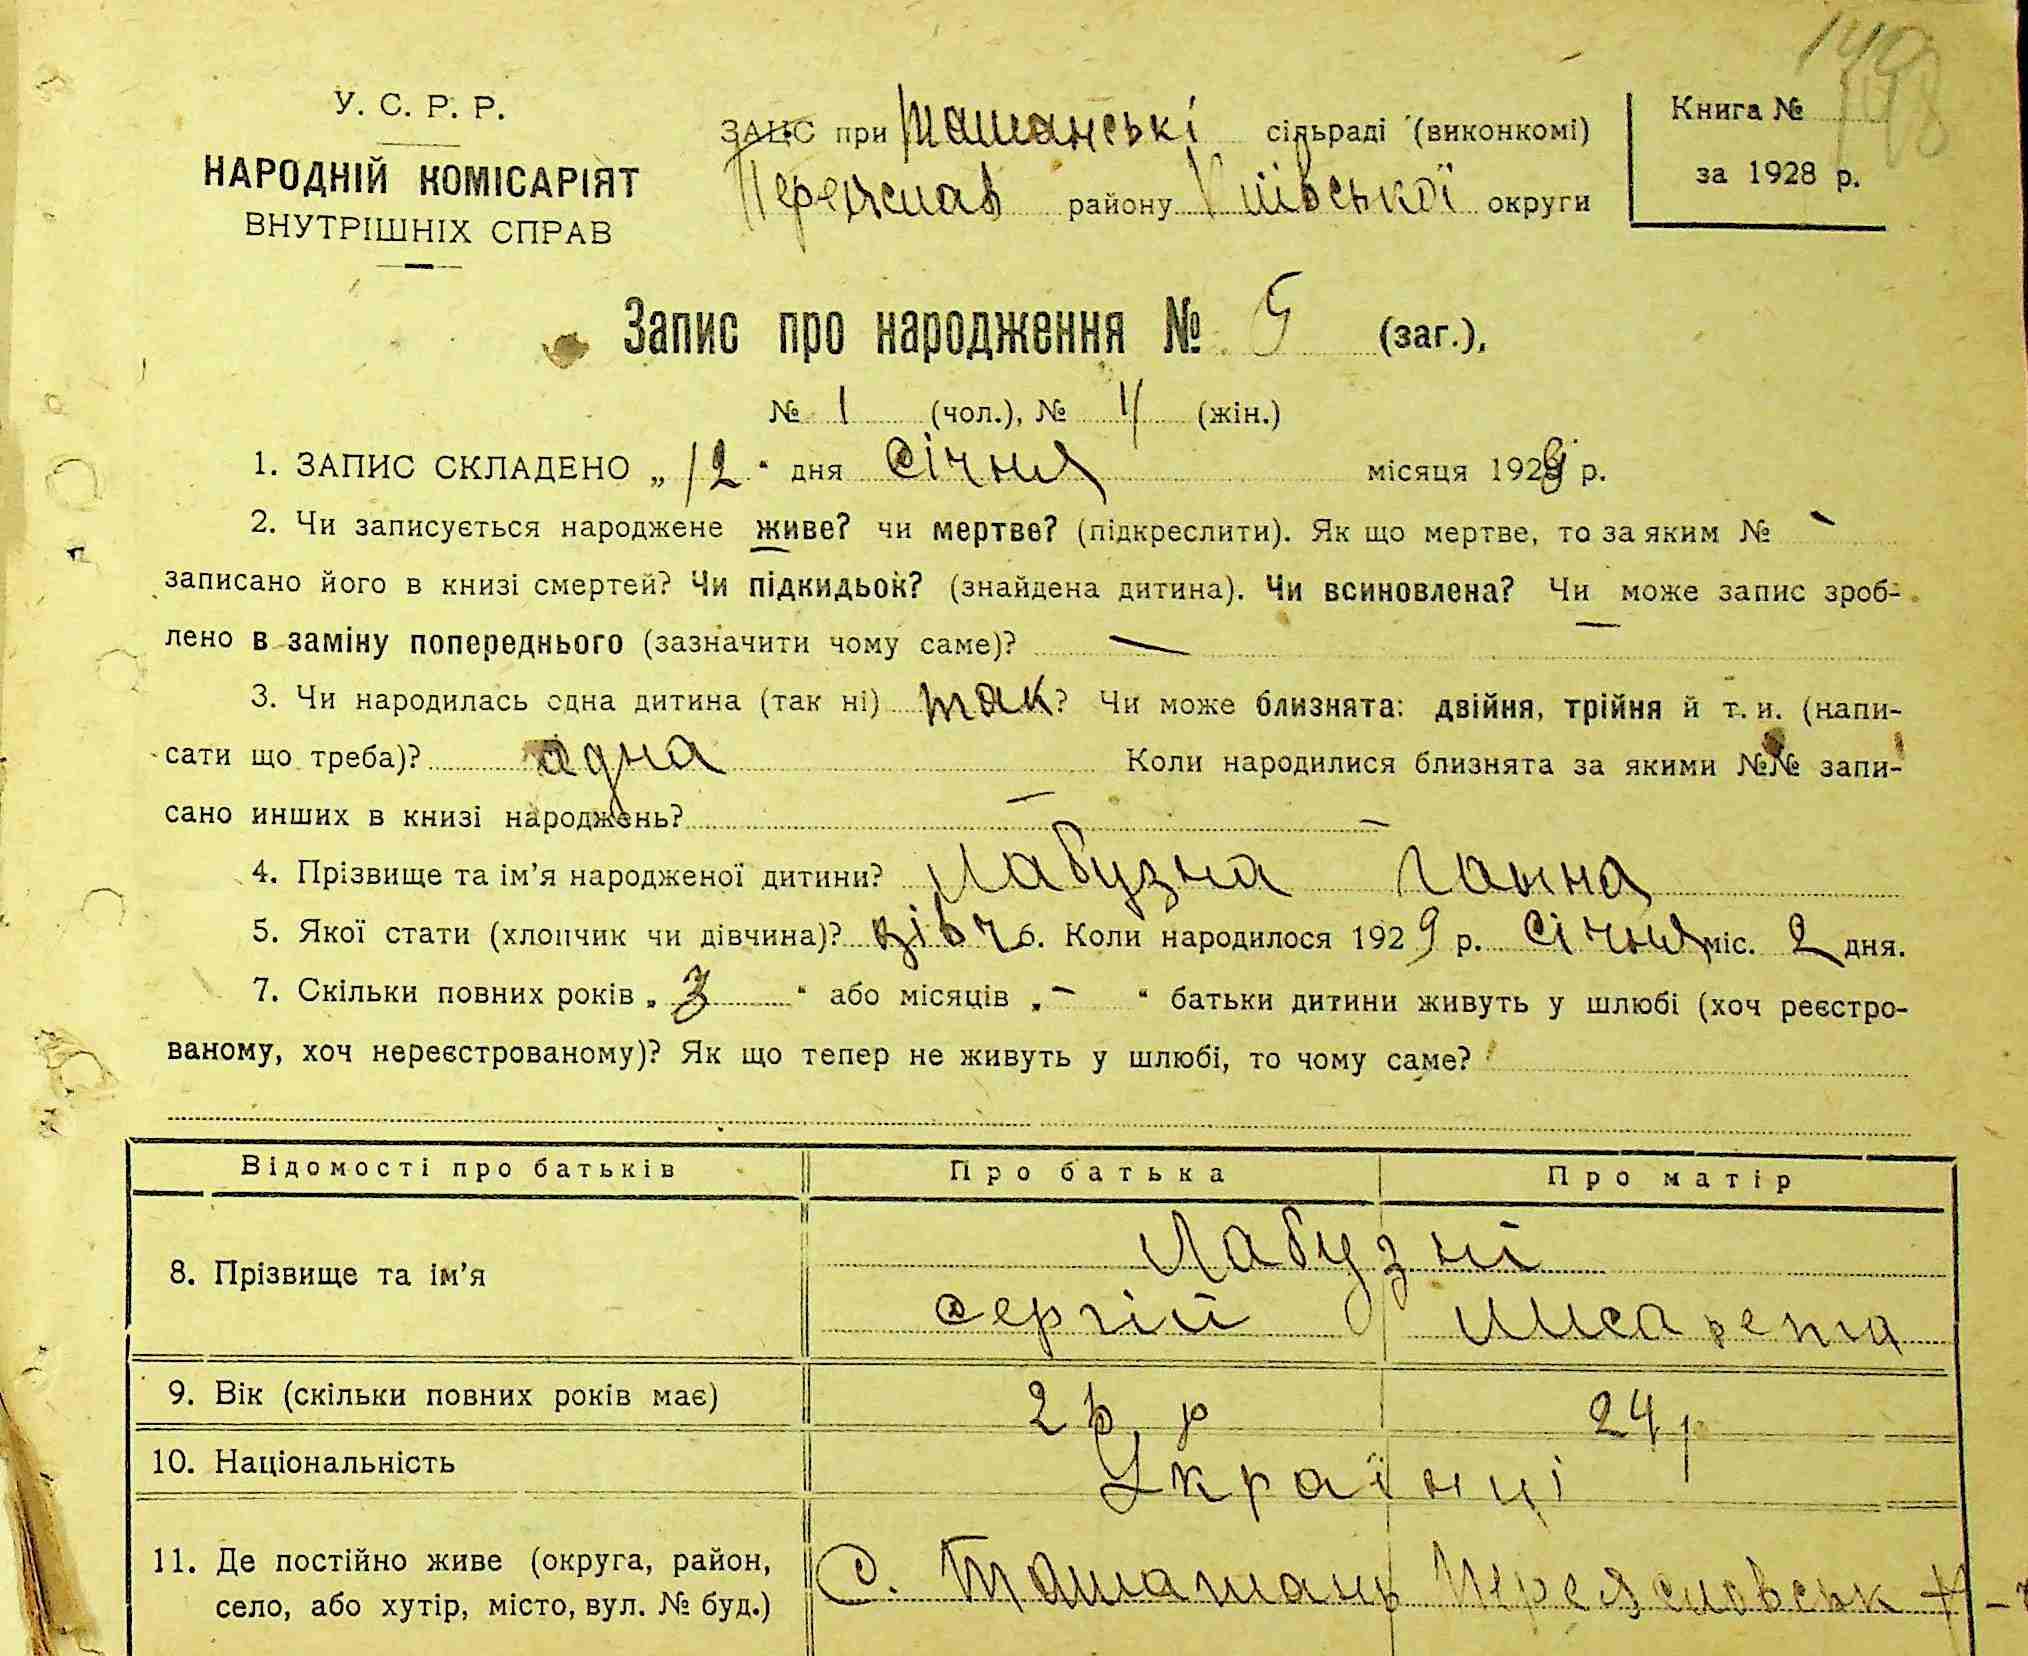 149
148
У. С. Р. Р.
НАРОДНІЙ КОМІСАРІЯТ
ВНУТРІШНІХ СПРАВ
ЗАЦС при Ташанські сільраді (виконкомі)
Переяслав району Київської округи
Книга №
за 1928 р.
Запис про народження № 5 (заг.),
№ 1 (чол.), № 4 (жін.)
1. ЗАПИС СКЛАДЕНО „12“ дня Січня місяця 1929 р.
2. Чи записується народжене живе? чи мертве? (підкреслити). Як що мертве, то за яким № -
записано його в книзі смертей? Чи підкидьок? (знайдена дитина). Чи всиновлена? Чи може запис зроб-
лено в заміну попереднього (зазначити чому саме)? —
3. Чи народилась одна дитина (так ні) так? Чи може близнята: двійня, трійня й т. и. (напи-
сати що треба)? одна Коли народилися близнята за якими №№ запи-
сано инших в книзі народжень? —
4. Прізвище та ім’я народженої дитини? Лабузна Ганна
5. Якої стати (хлопчик чи дівчина)? дівч 6. Коли народилося 1929 р. Січня міс. 2 дня.
7. Скільки повних років „3“ або місяців „-“ батьки дитини живуть у шлюбі (хоч реєстро-
ваному, хоч нереєстрованому)? Як що тепер не живуть у шлюбі, то чому саме?
Відомості про батьків Про батька Про матір
Лабузні
8. Прізвище та ім’я
Сергій
9. Вік (скільки повних років має) 26 р 24 р
10. Національність Українці
11. Де постійно живе (округа, район,
село, або хутір, місто, вул. № буд.)
С. Ташань